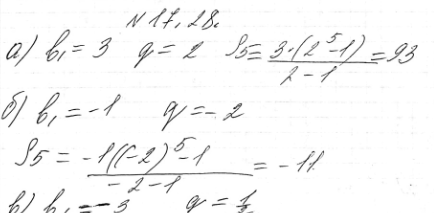 N 17.28.
а) b₁ = 3 q = 2 S5 = 3·(2⁵-1)/2-1 = 93
б) b₁ = -1 q = -2
S5 = -1((-2)⁵-1/-2-1 = -11
в) b₁ = -3 q = 1/2